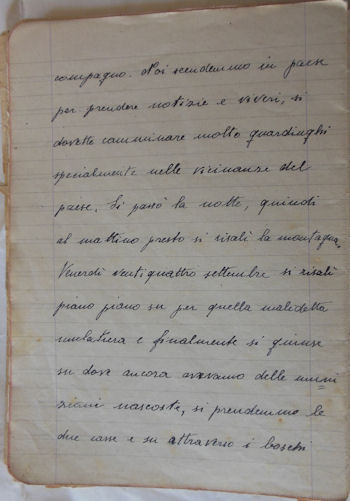 compagno. Noi scendemmo in paese
per prendere notizie e viveri, si
dovette camminare molto guardinghi
specialmente nelle vicinanze del
paese. Si passò la notte, quindi
al mattino presto si risalì la montagna.
Venerdì ventiquattro settembre si risalì
piano piano su per quella maledetta
mulatiera e finalmente si giunse
su dove ancora avevamo delle muni
zioni nascoste, si prendemmo le
due casse e su attraverso i boschi